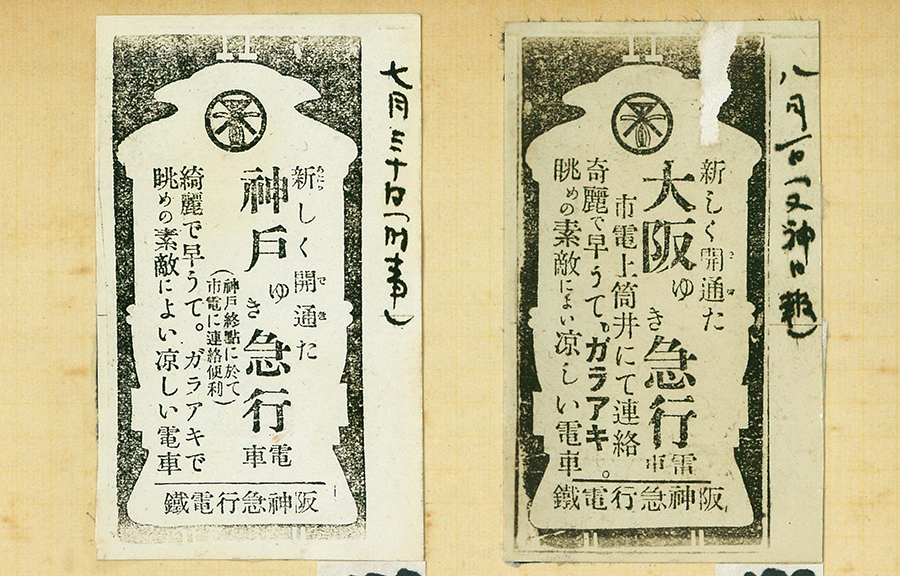 七月三十日
新しく開通た
神戶ゆき急行電車
（神戶終點に於て
市電に連絡便利）
綺麗で早うて。ガラアキで
眺めの素敵によい凉しい電車
阪神急行電鐵
八月一日「又神日報」
新しく開通た
大阪ゆき急行電車
市電上筒井にて連絡
奇麗で早うて。ガラアキ。
眺めの素敵によい凉しい電車
阪神急行電鐵